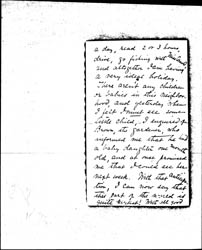 a day, read 2 or 3 hours,
drive, go fishing with
and altogether I am having
a very ideal holiday.
There aren't any children
or babies in this neighbor-
hood, and yesterday when
I felt I must see some
little child, I enquired of
Brown, the gardener, who
informed me that he had
a baby daughter one month
old, and at once promised
me that I could see her
next week. With this
I can now say that
this part of the world is
quite perfect! With all good